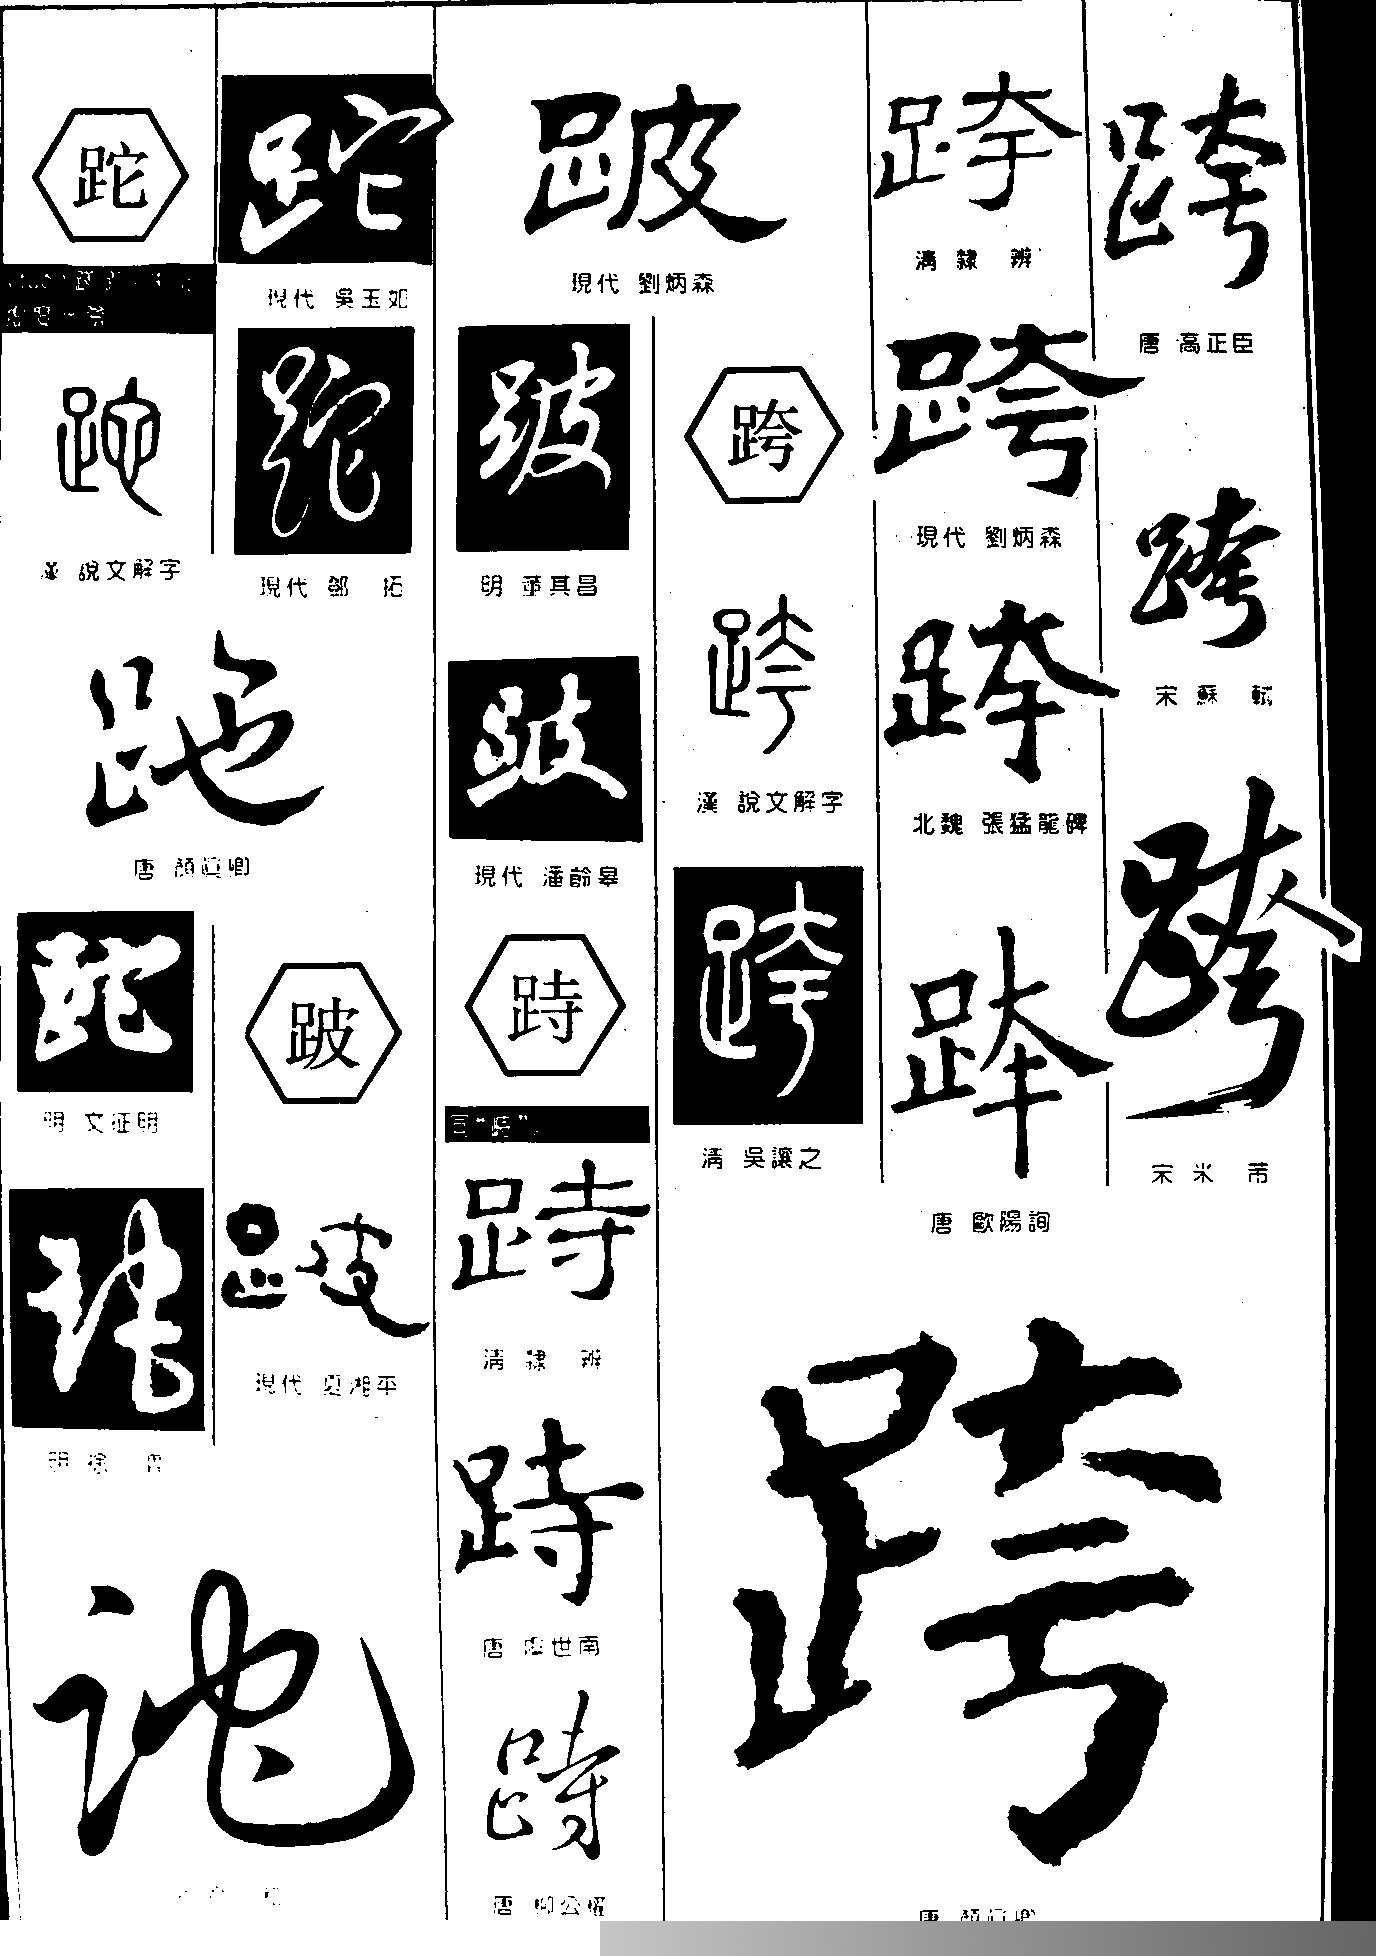 跎
跎
現代 吳玉如
跎
漢 說文解字
跎
現代 鄧 拓
跎
唐 顏真卿
跎
明 文征明
跎
明 徐 渭
跎
跛
跛
現代 夏湘平
跛
現代 劉炳森
跛
明 董其昌
跛
現代 潘齡皋
跱
同“峙”
跱
清 隸 辨
跱
唐 虞世南
跱
唐 柳公權
跨
跨
漢 說文解字
跨
清 吳讓之
跨
清 隸 辨
跨
現代 劉炳森
跨
北魏 張猛龍碑
跨
唐 歐陽詢
跨
唐 高正臣
跨
宋 蘇 軾
跨
宋 米 芾
跨
唐 顏真卿